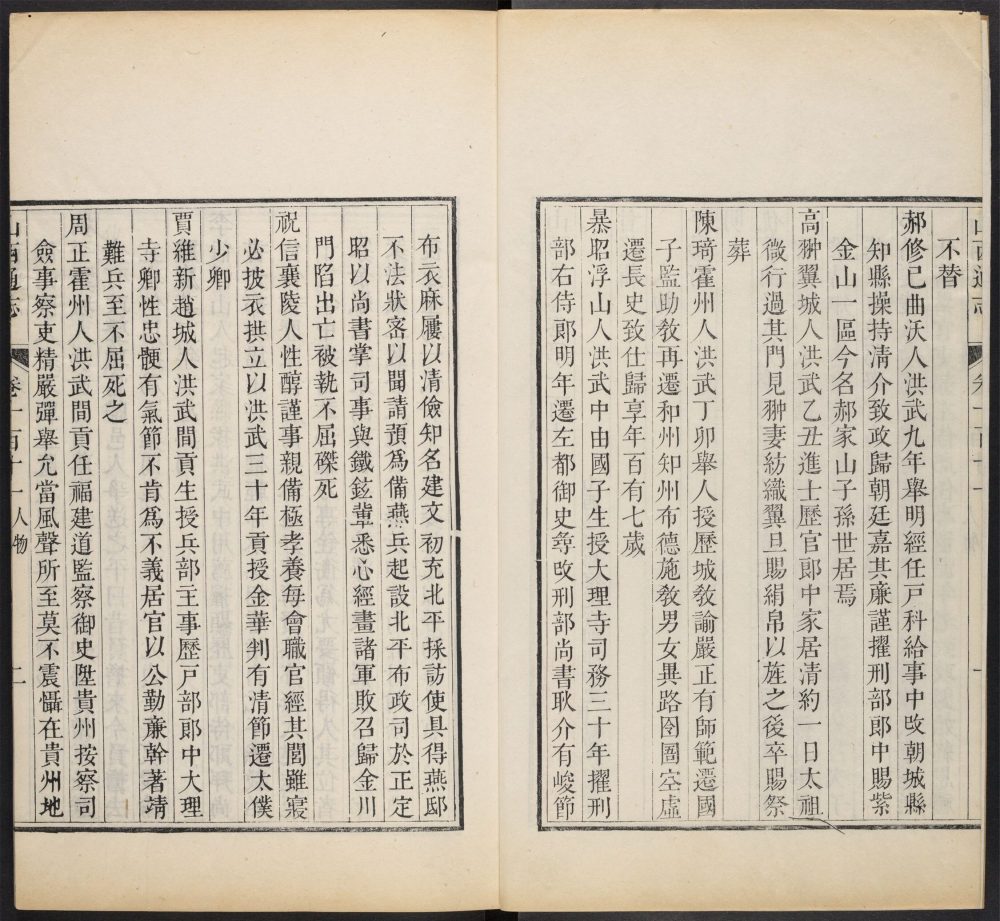 不替
郝修已曲沃人洪武九年舉明經任戸科給事中改朝城縣
知縣操持清介致政歸朝廷嘉其亷謹擢刑部郎中賜紫
金山一區今名郝家山子孫世居焉
高翀翼城人洪武乙丑進士歷官郎中家居清約一日太祖
微行過其門見翀妻紡織翼旦賜絹帛以旌之後卒賜祭
葬
陳琦霍州人洪武丁卯舉人授歷城敎諭嚴正有師範遷國
子監助敎再遷和州知州布德施敎男女異路囹圄空虛
遷長史致仕歸享年百有七歲
暴昭浮山人洪武中由國子生授大理寺司務三十年擢刑
部右侍郎明年遷左都御史尋改刑部尚書耿介有峻節
布衣麻屨以清儉知名建文初充北平採訪使具得燕邸
不法狀宻以聞請預爲備燕兵起設北平布政司於正定
昭以尚書掌司事與鐵鉉輩悉心經畫諸軍敗召歸金川
門陷出亡被執不屈磔死
祝信襄陵人性醇謹事親備極孝養每會職官經其閭雖寢
必披衣拱立以洪武三十年貢授金華判有清節遷太僕
少卿
賈維新趙城人洪武間貢生授兵部主事歷戸部郎中大理
寺卿性忠骾有氣節不肯爲不義居官以公勤亷幹著靖
難兵至不屈死之
周正霍州人洪武間貢任福建道監察御史陞貴州按察司
僉事察吏精嚴彈舉允當風聲所至莫不震懾在貴州地
山西通志 卷一百十一人物 二